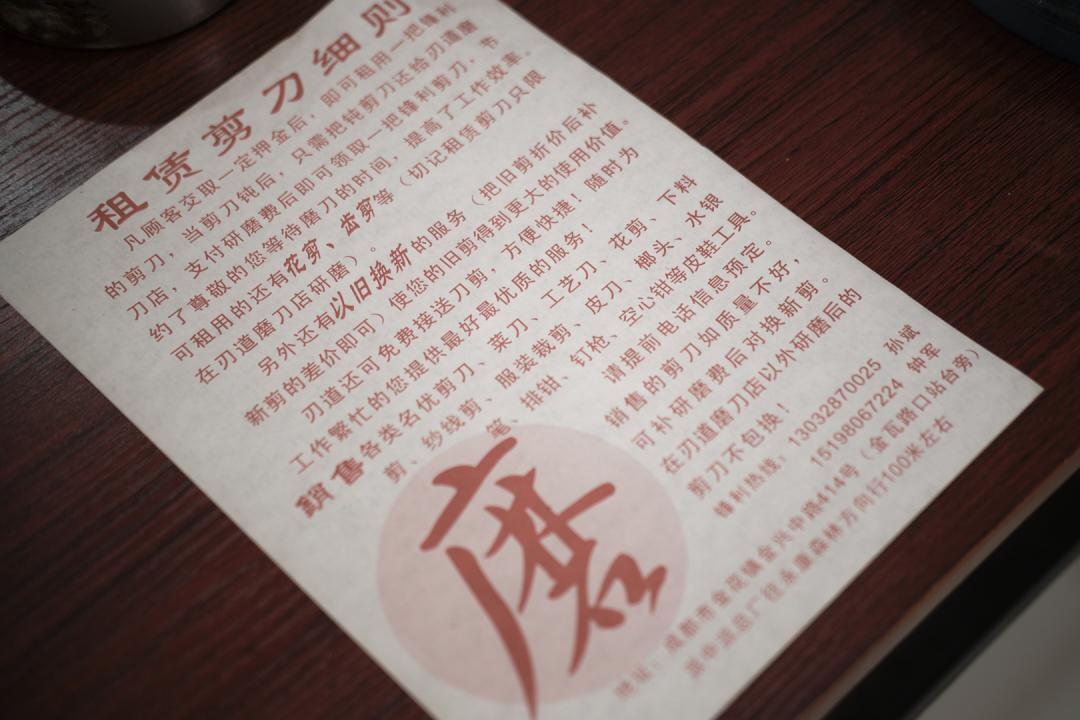 租赁剪刀细则
凡顾客交取一定押金后，即可租用一把锋利
的剪刀，当剪刀钝后，只需把钝剪刀还给刃道磨
刀店，支付研磨费后即可领取一把锋利剪刀，节
约了尊敬的您等待磨刀的时间，提高了工作效率.
可租用的还有花剪、齿剪等（切记租赁剪刀只限
在刃道磨刀店研磨）。
另外还有以旧换新的服务（把旧剪折价后补
新剪的差价即可）使您的旧剪得到更大的使用价值。
刃道还可免费接送刀剪，方便快捷！随时为
工作繁忙的您提供最好最优质的服务！
銷售各类名优剪刀、菜刀、工艺刀、花剪、下料
剪、纱线剪、服装裁剪、皮刀、榔头、水银
笔、排钳、钉枪、空心钳等皮鞋工具。
请提前电话信息预定。
销售的剪刀如质量不好，
可补研磨费后对换新剪。
在刃道磨刀店以外研磨后的
剪刀不包换！
锋利热线：13032870025 孙斌
15198067224 钟军
地址：成都市金花镇金兴中路414号（金瓦路口站台旁）
永康森林方向行100米左右
磨